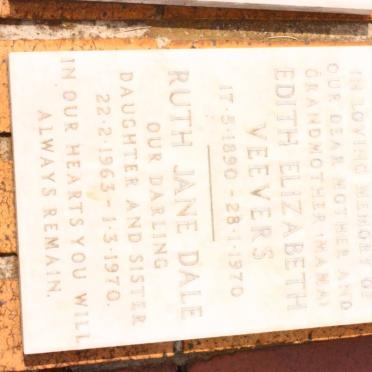 IN LOVING MEMORY OF
OUR DEAR MOTHER AND
GRANDMOTHER (MAMA)
EDITH ELIZABETH
VEEVERS
17·5·1890 - 28·1·1970
RUTH JANE DALE
OUR DARLING
DAUGHTER AND SISTER
22·2·1963 - 1·3·1970.
IN OUR HEARTS YOU WILL
ALWAYS REMAIN.